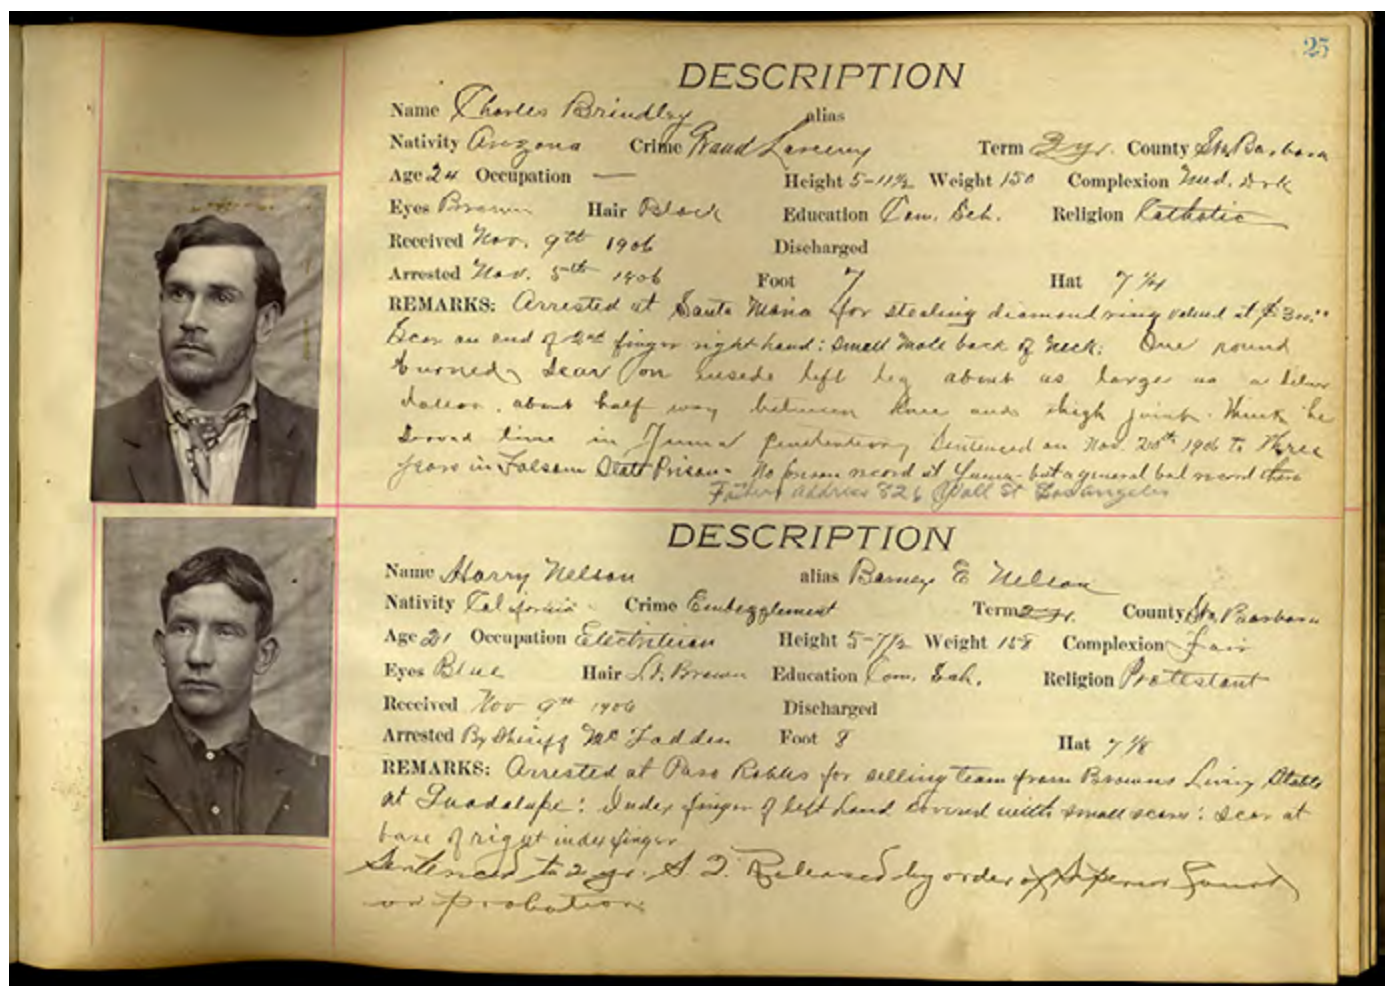 25
DESCRIPTION
Name Charles Brindley alias
Nativity Arizona Crime Grand Larceny Term 3 yr. County Sta Barbara
Age 24 Occupation — Height 5-11½ Weight 150 Complexion Med. Drk
Eyes Brown Hair Black Education Com. Sch. Religion Catholic
Received Nov. 9th 1906 Discharged
Arrested Nov. 5th 1906 Foot 7 Hat 7 1/4
REMARKS: Arrested at Santa Maria for stealing diamond ring valued at $300.00
Scar on end of 2nd finger right hand: small mole back of neck: One round
burned scar on inside left leg about as large as a silver
dollar, about half way between knee and thigh joint. Think he
served time in Yuma penitentiary Sentenced on Nov. 20th 1906 to three
years in Folsom State Prison - No prison record at Yuma - but a general bad record there
Fathers address 826 Wall St Los Angeles
DESCRIPTION
Name Harry Nelson alias Barney E Nelson
Nativity California Crime Embezzlement Term 2 yr. County Sta Barbara
Age 21 Occupation Electrician Height 5-7½ Weight 158 Complexion Fair
Eyes Blue Hair Lt. Brown Education Com. Sch. Religion Protestant
Received Nov 9th 1906 Discharged
Arrested By Sheriff McFadden Foot 8 Hat 7 1/8
REMARKS: Arrested at Paso Robles for selling team from Browns Livery Stable
at Guadalupe: Index finger of left hand covered with small scars: scar at
base of right index finger
Sentenced to 2 yr. S Q. Released by order of Superior Court
on probation.